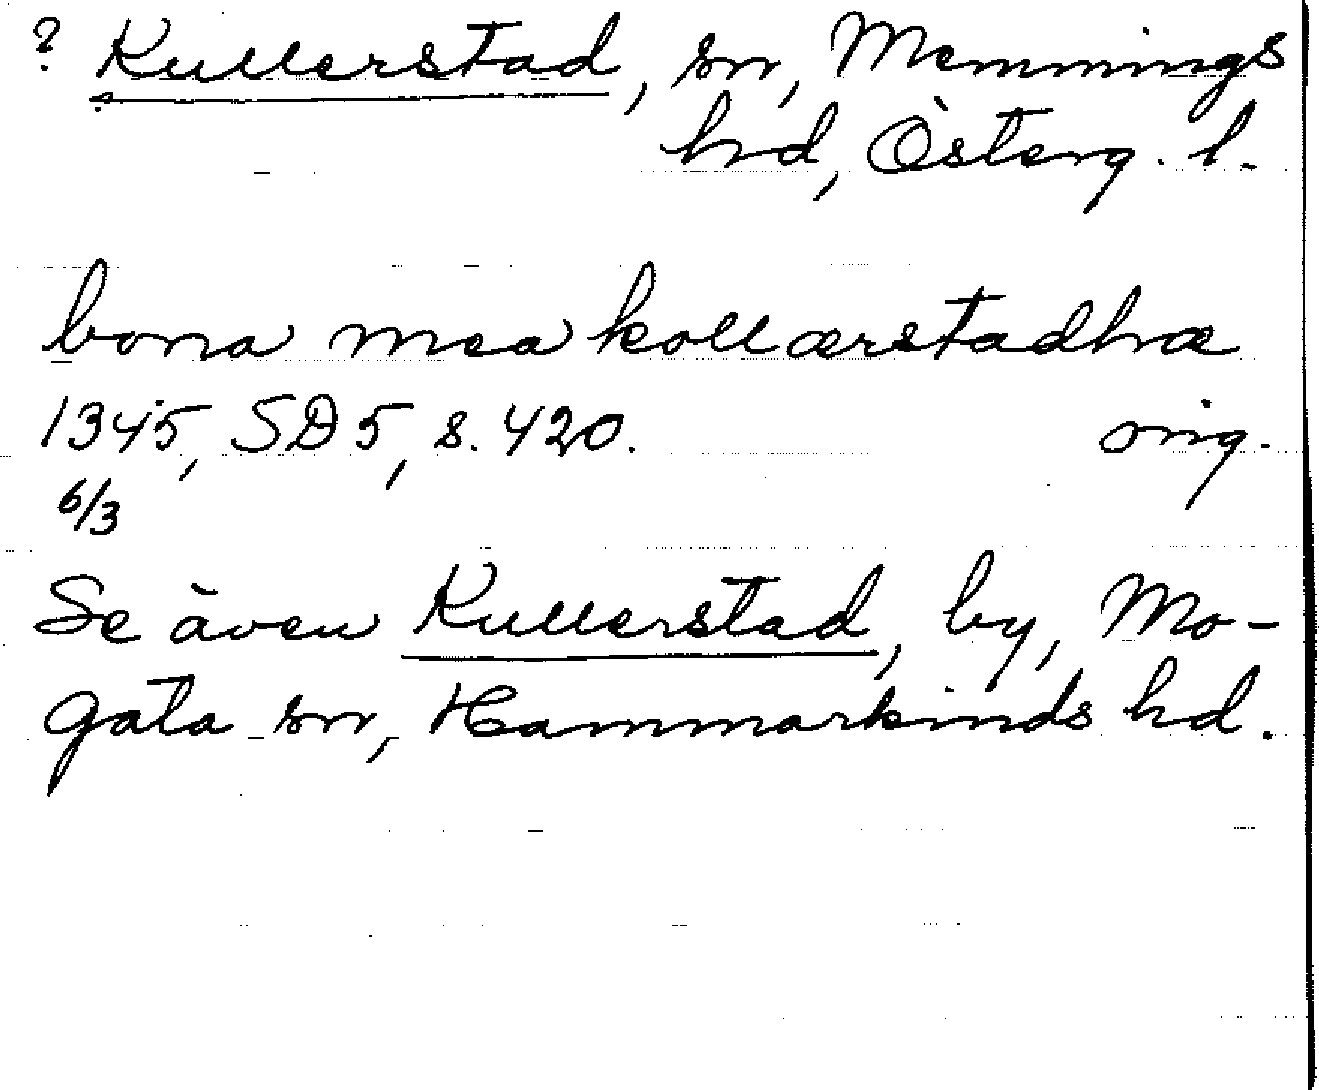 ? Kullerstad, sn, Memmings
hd, Österg. l.
bona mea kollærstadhæ
1345, SD 5, s. 420. orig.
6/3
Se även Kullerstad, by, Mo-
gata sn, Hammarkinds hd.